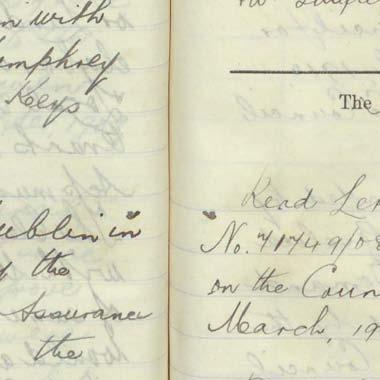 in with
umphrey
Keys
ublin in
of the
Assurance
the
The
Read Le
No. 71749/08
on the Coun
March, 19